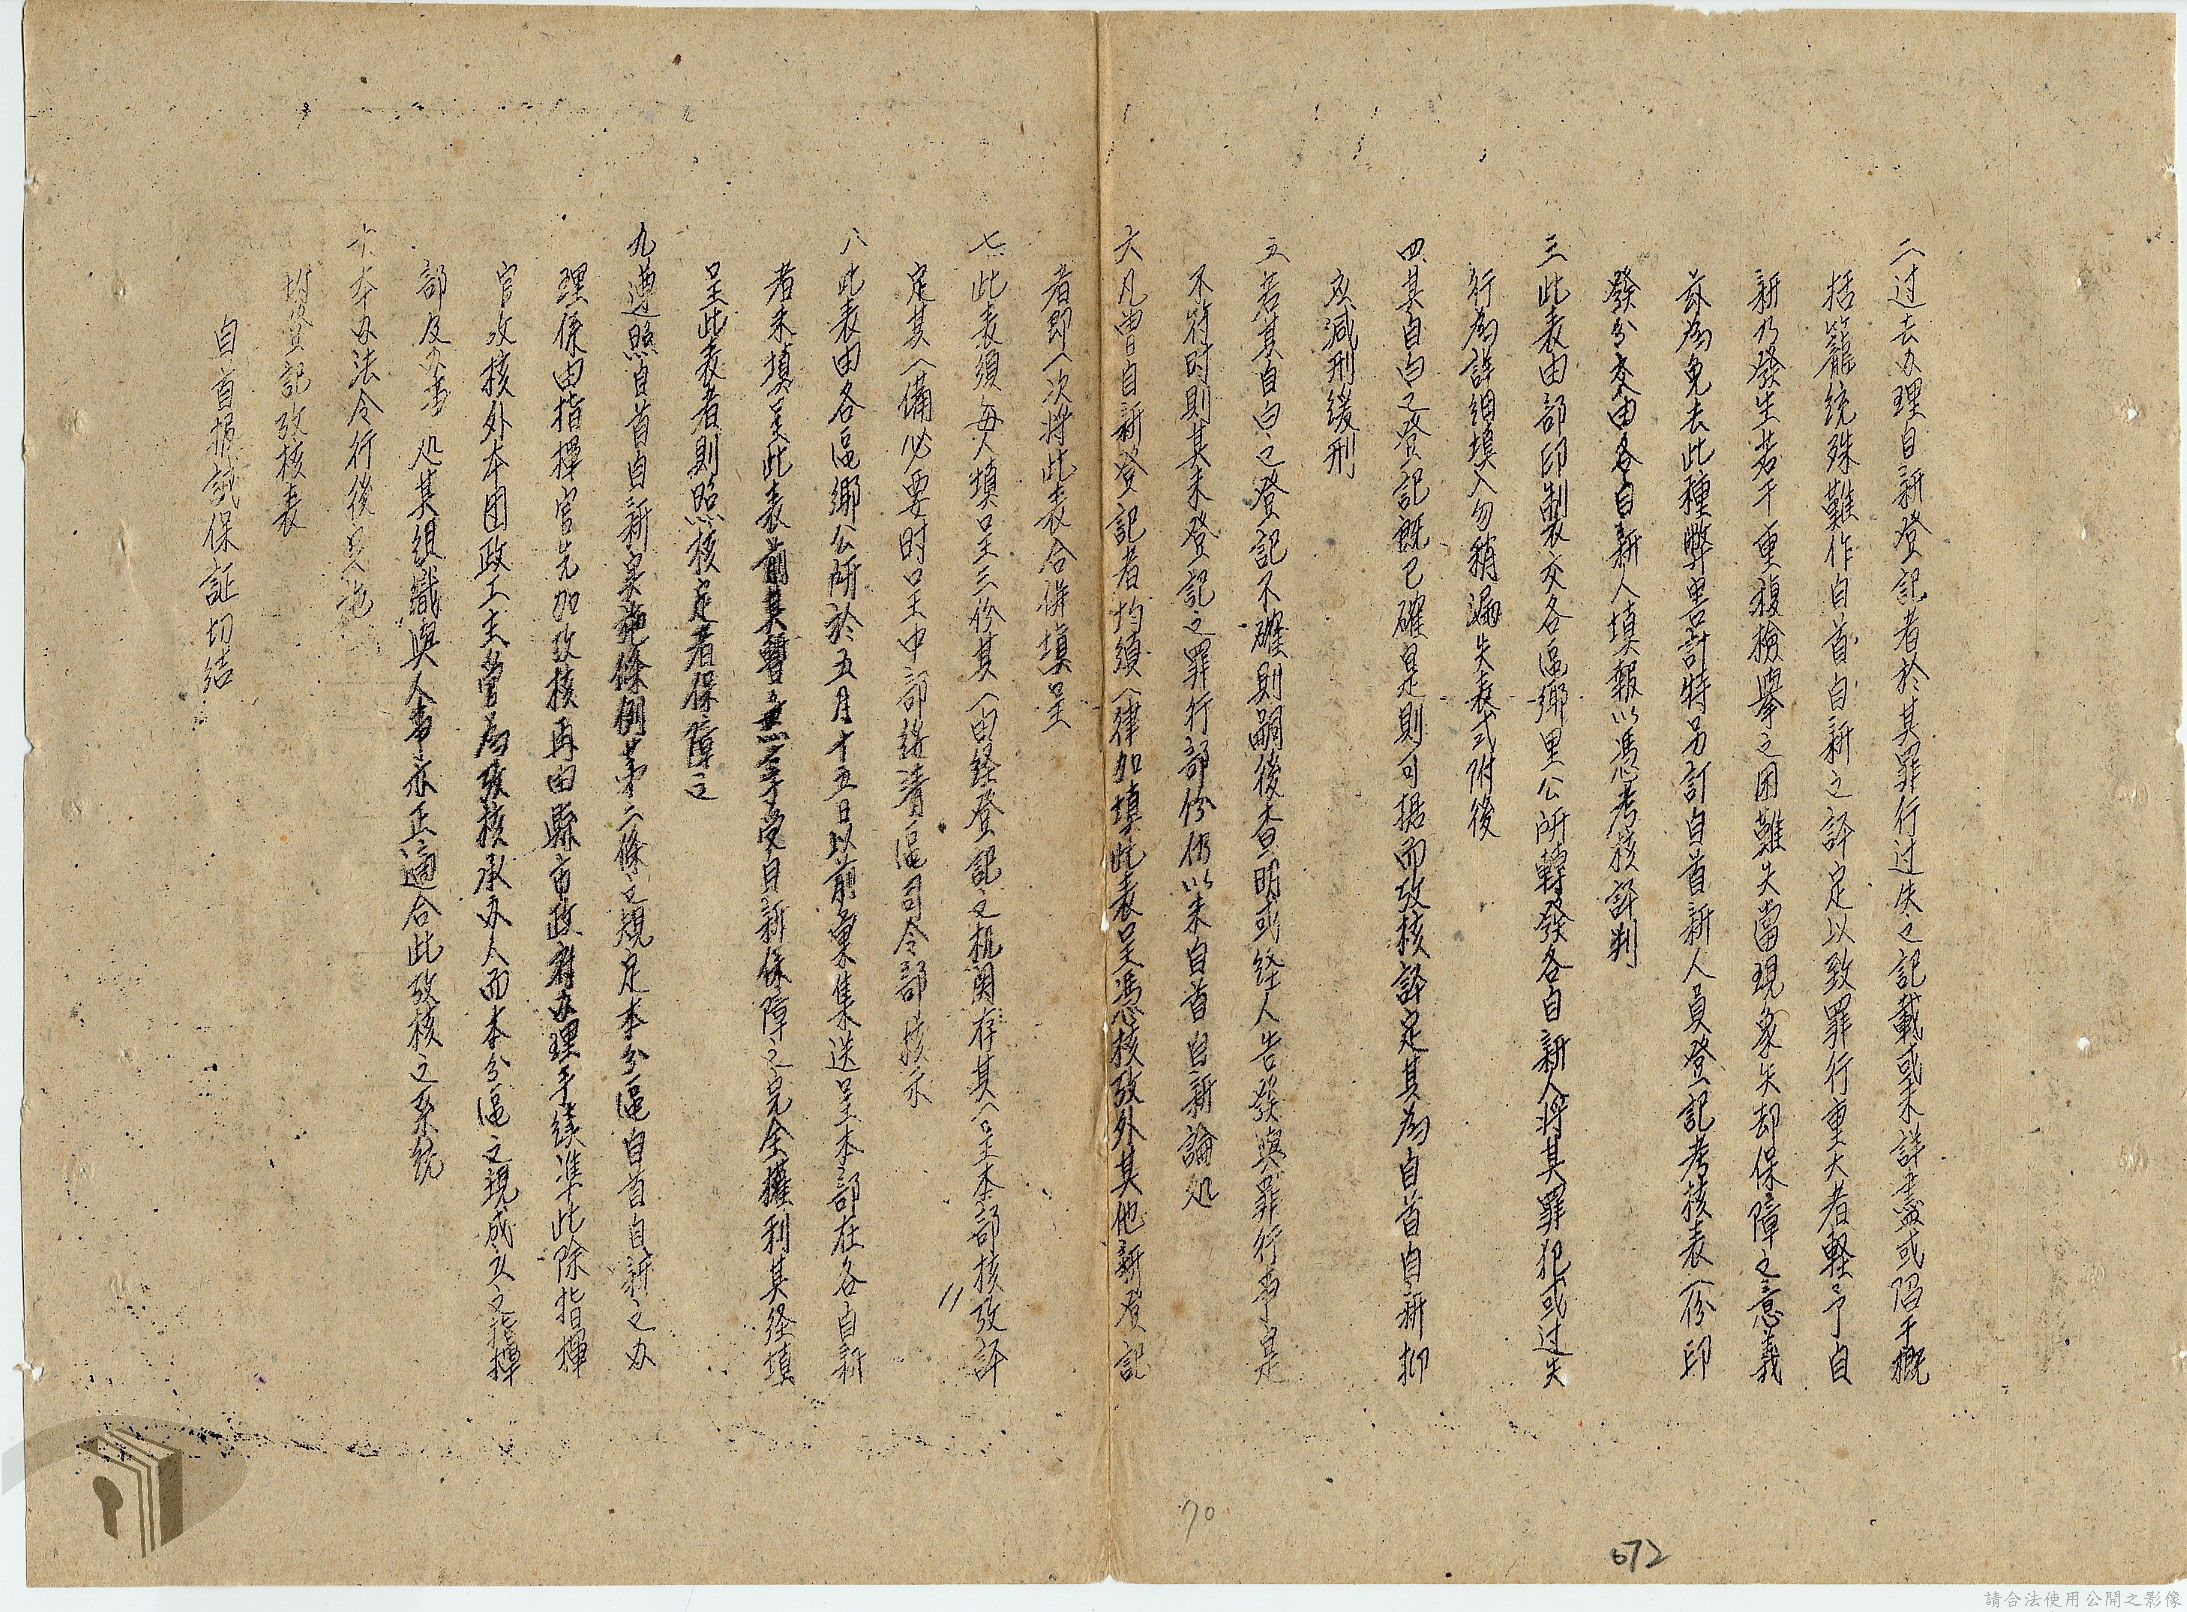 二过去办理自新登記者於其罪行过失之記載或未詳盡或陷于概
括籠統殊難作自首自新之評定以致罪行重大者軽予自
新乃發生若干重複檢舉之困難失當現象失却保障之意義
茲為免去此種弊害計特另訂自首新人員登記考核表一份印
發分交由各自新人填報以憑考核評判
三此表由部印制製交各區鄉里公所轉發各自新人將其罪犯或过失
行為詳細填入勿稍漏失表式附後
四其自白之登記既已確是則可据而攷核評定其為自首自新抑
應減刑緩刑
五若其自白之登記不確則嗣後查明或经人告發與罪行事是
不符时則其未登記之罪行部份仍以未自首自新論処
六凡曾自新登記者均須一律加填此表呈憑核攷外其他新登記
者即一次將此表合併填呈
七此表須每人填呈三份其一由経登記之机関存其一呈本部核攷評
定其一備必要时呈中部綏靖區司令部核示
八此表由各區鄉公所於五月十五日以前彙集送呈本部在各自新
者未填呈此表前其暫享受自新保障之完全權利其经填
呈此表者則照核定者保障之
九遵照自首自新實施條例第二條之規定本分區自首自新之办
理係由指揮官先加攷核再由縣市政府办理手续准此除指揮
官攷核外本团政工主管為攷核承办人而本分區之現成立之指揮
部及办事処其組織與人事亦正適合此攷核之系統
十本办法令行後实施
均登記攷核表
自首报誠保証切结
70
672
請合法使用公開之影像